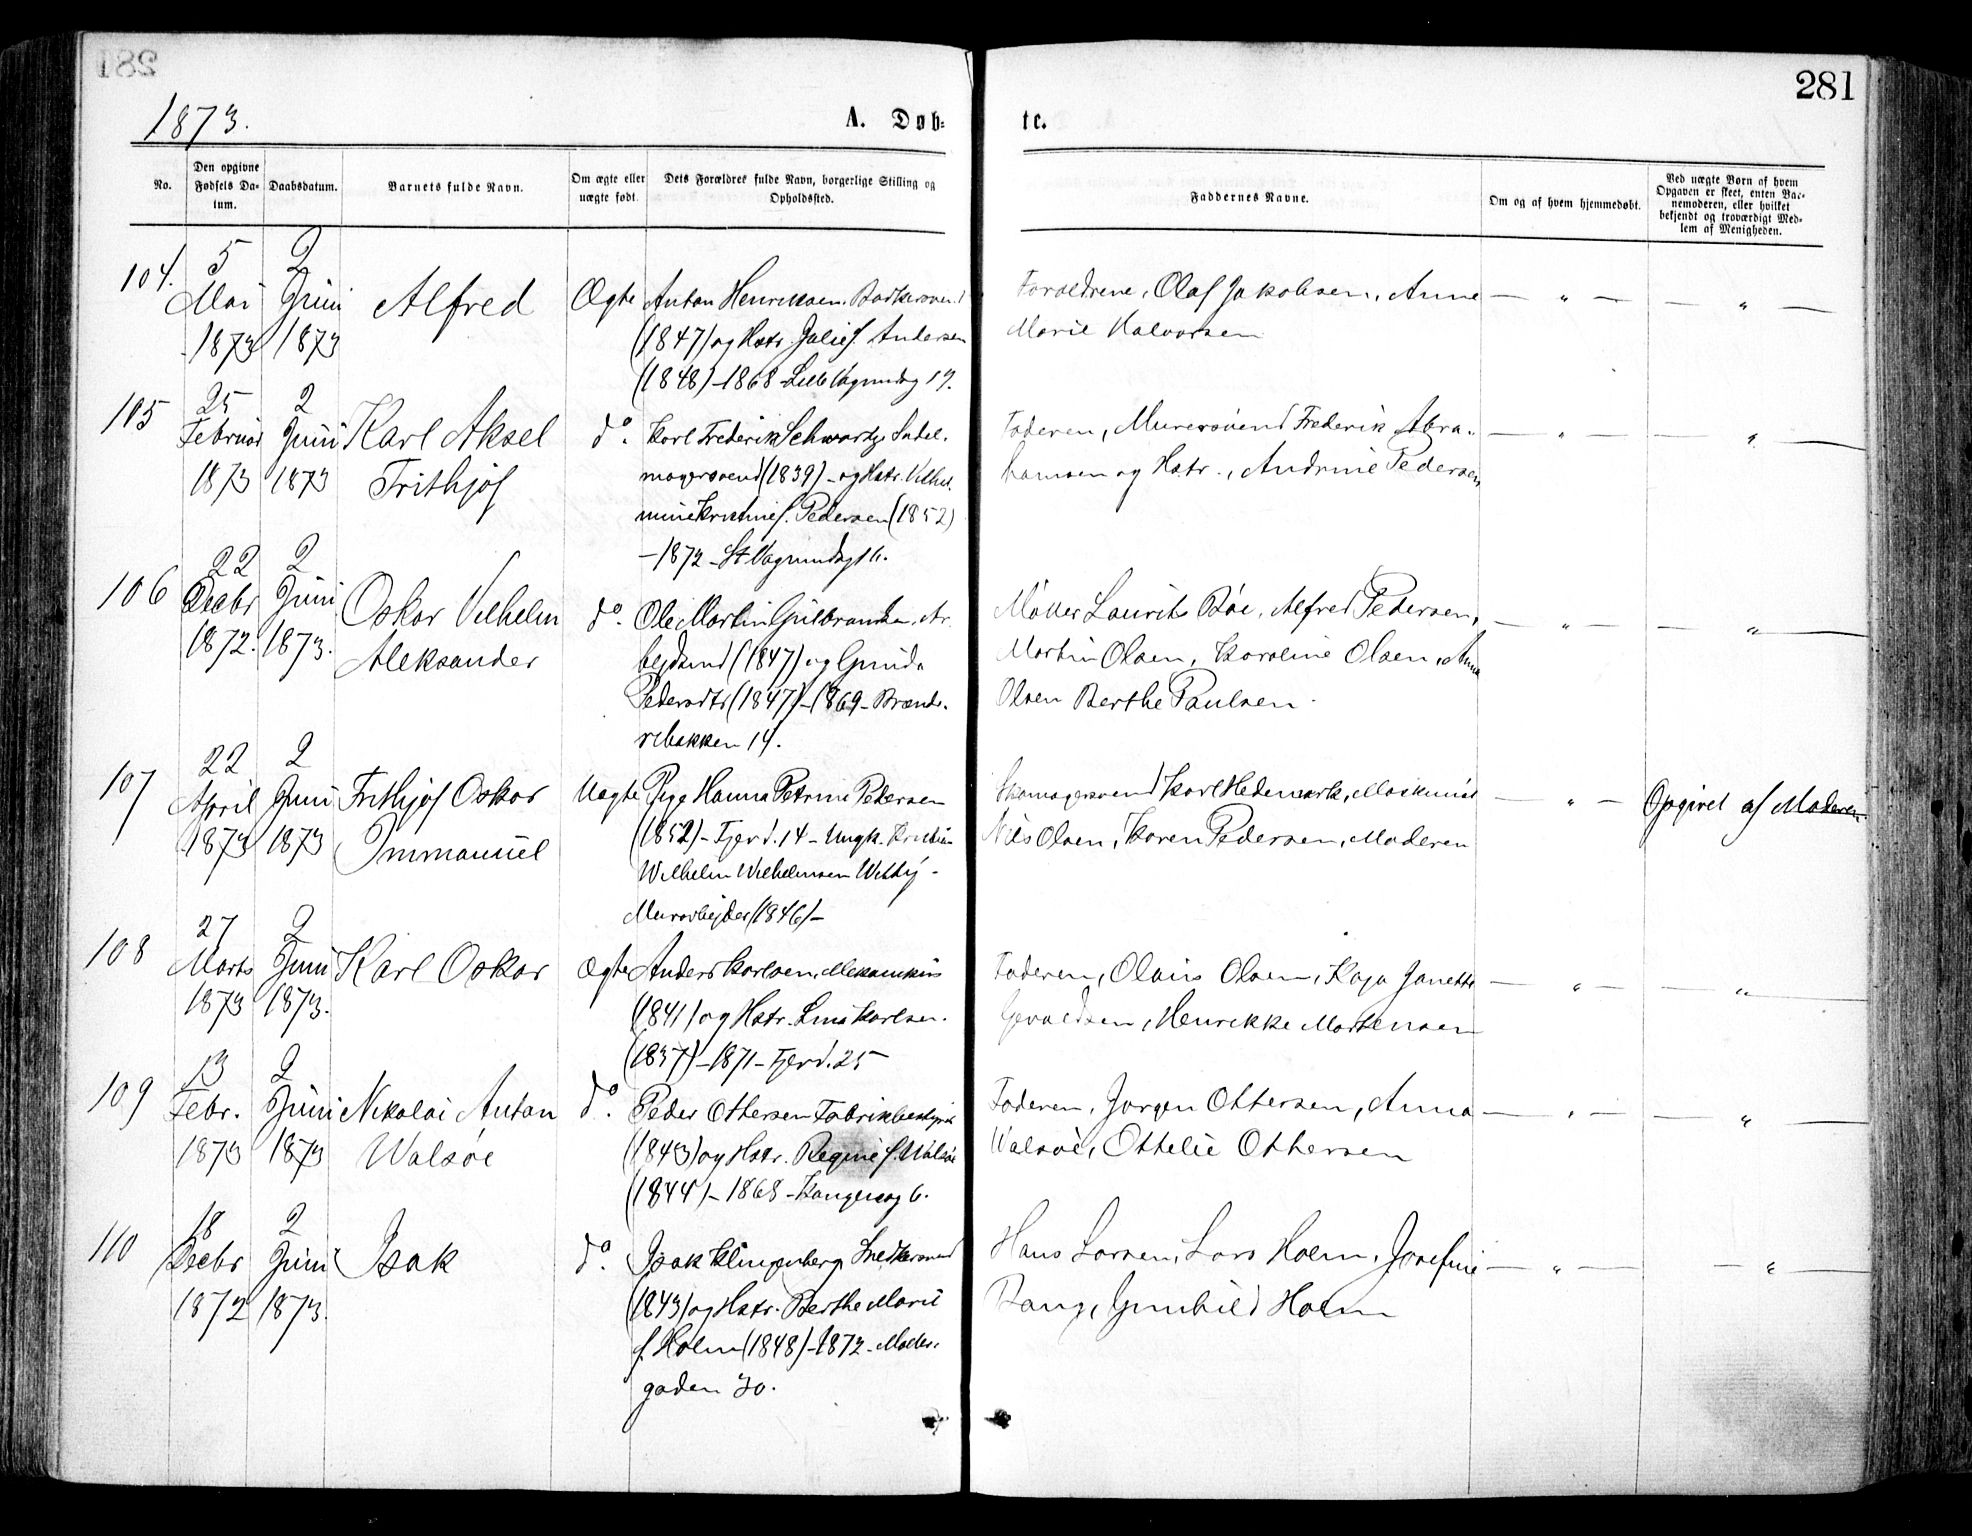 281
1873.
A. Døb=
te.
No.
Den opgivne Fødsels Datum.
Daabsdatum.
Barnets fulde Navn.
Om ægte eller uægte født.
Dets Forældres fulde Navn, borgerlige Stilling og Opholdssted.
Faddernes Navne.
Om og af hvem hjemmedøbt.
Ved uægte Børn af hvem Opgaven er skeet, enten Barnemoderen, eller hvilket bekjendt og troværdigt Medlem af Menigheden.
104.
5 Mai 1873
2 Juni 1873
Alfred
Ægte
Anton Henriksen, Bødkersvend
(1847) og Hstr. Julie f. Andersen
(1848) – 1868 – Lille Vognmdsg 17.
Forældrene, Olaf Jakobsen, Anne
Marie Halvorsen
— " —
— " —
105
25 Februar 1873
2 Juni 1873
Karl Aksel
Frithjof
do.
Karl Frederik Schwartz Sadel-
magersvend (1839) – og Hstr. Vilhel-
mine Kristine f. Pedersen (1852)
– 1872 – St Vognmdsgt 6.
Faderen, Murersvend Frederik Abra-
hamsen og Hstr., Andrine Pedersen
— " —
— " —
106
22 Decbr 1872.
2 Juni 1873.
Oskar Vilhelm
Aleksander
do.
Ole Martin Gulbrandsen, Ar-
bejdsmd (1847) og Gunda
Pedersdtr (1847) – 1869 – Brænde-
ribakken 14.
Møller Laurits Bøe, Alfred Pedersen,
Martin Olsen, Karoline Olsen, Anna
Olsen Berthe Paulsen.
— " —
— " —
107
22 April 1873
2 Juni 1873
Frithjof Oskar
Immanuel
Uægte
Pige Hanna Petrine Pedersen
(1852) – Fjerd. 14 – Ungk. Kristian
Wilhelm Wilhelmsen
Murarbejder (1846) –
Skomagersvend Karl Hedemark, Maskinist
Nils Olsen, Karen Pedersen, Moderen
— " —
Opgivet af Moderen
108
27 Marts 1873
2 Juni 1873.
Karl Oskar
Ægte
Anders Karlsen, Mekanikus
(1841) og Hstr. Lina Karlsen.
(1837) – 1871 – Fjerd. 25
Faderen, Olaus Olsen, Kaja Janette
Gevaldsen, Henrikke Mortensen
— " —
— " —
109
13 Febr. 1873
2 Juni 1873
Nikolai Anton
Walsøe
do.
Peder Ottersen Fabrikbestyrer
(1843) og Hstr. Regine f. Walsøe
(1844) – 1868 – Kongensg 6.
Faderen, Jørgen Ottersen, Anna
Walsøe, Ottelie Ottersen
— " —
— " —
110
18 Decbr 1872
2 Juni 1873.
Isak
do.
Isak Klingenberg Snedkersvend
(1843) og Hstr. Berthe Marie
f. Holm (1848) – 1872 – Møller-
gaden 30.
Hans Larsen, Lars Holm, Josefine
Bang, Gunhild Holm
— " —
— " —